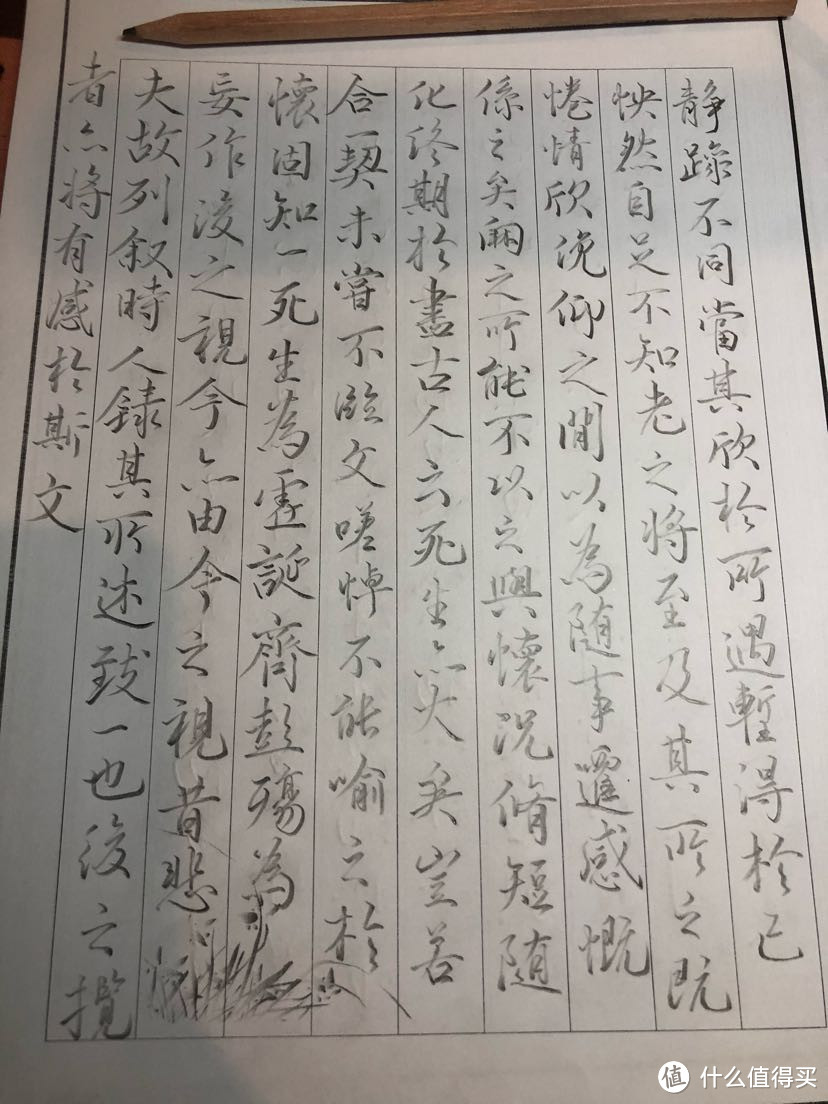 静躁不同當其欣於所遇暫得於己
怏然自足不知老之将至及其所之既
惓情欣俛仰之間以為随事遷感慨
係之矣之所能不以之興懷況脩短随
化終期於盡古人云死生亦大矣豈若
合一契未嘗不臨文嗟悼不能喻之於
懷固知一死生為虛誕齊彭殤為
妄作後之視今亦由今之視昔悲
夫故列叙時人錄其所述致一也後之攬
者亦将有感於斯文
值 什么值得买